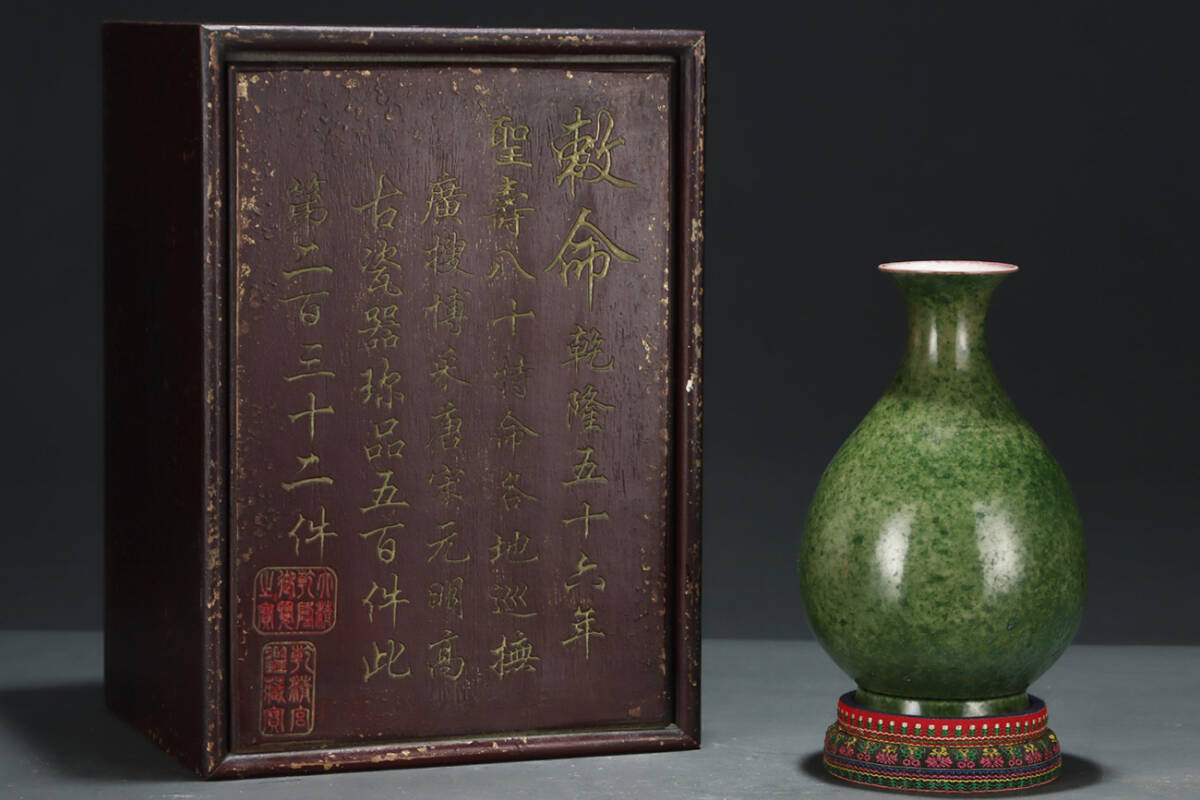 敕命乾隆五十六年
聖壽八十特命各地巡撫
廣搜博采唐宋元明高
古瓷器珎品五百件此
第二百三十二件
大清
乾隆
御覽
之寶
乾清宮
鑑藏寶